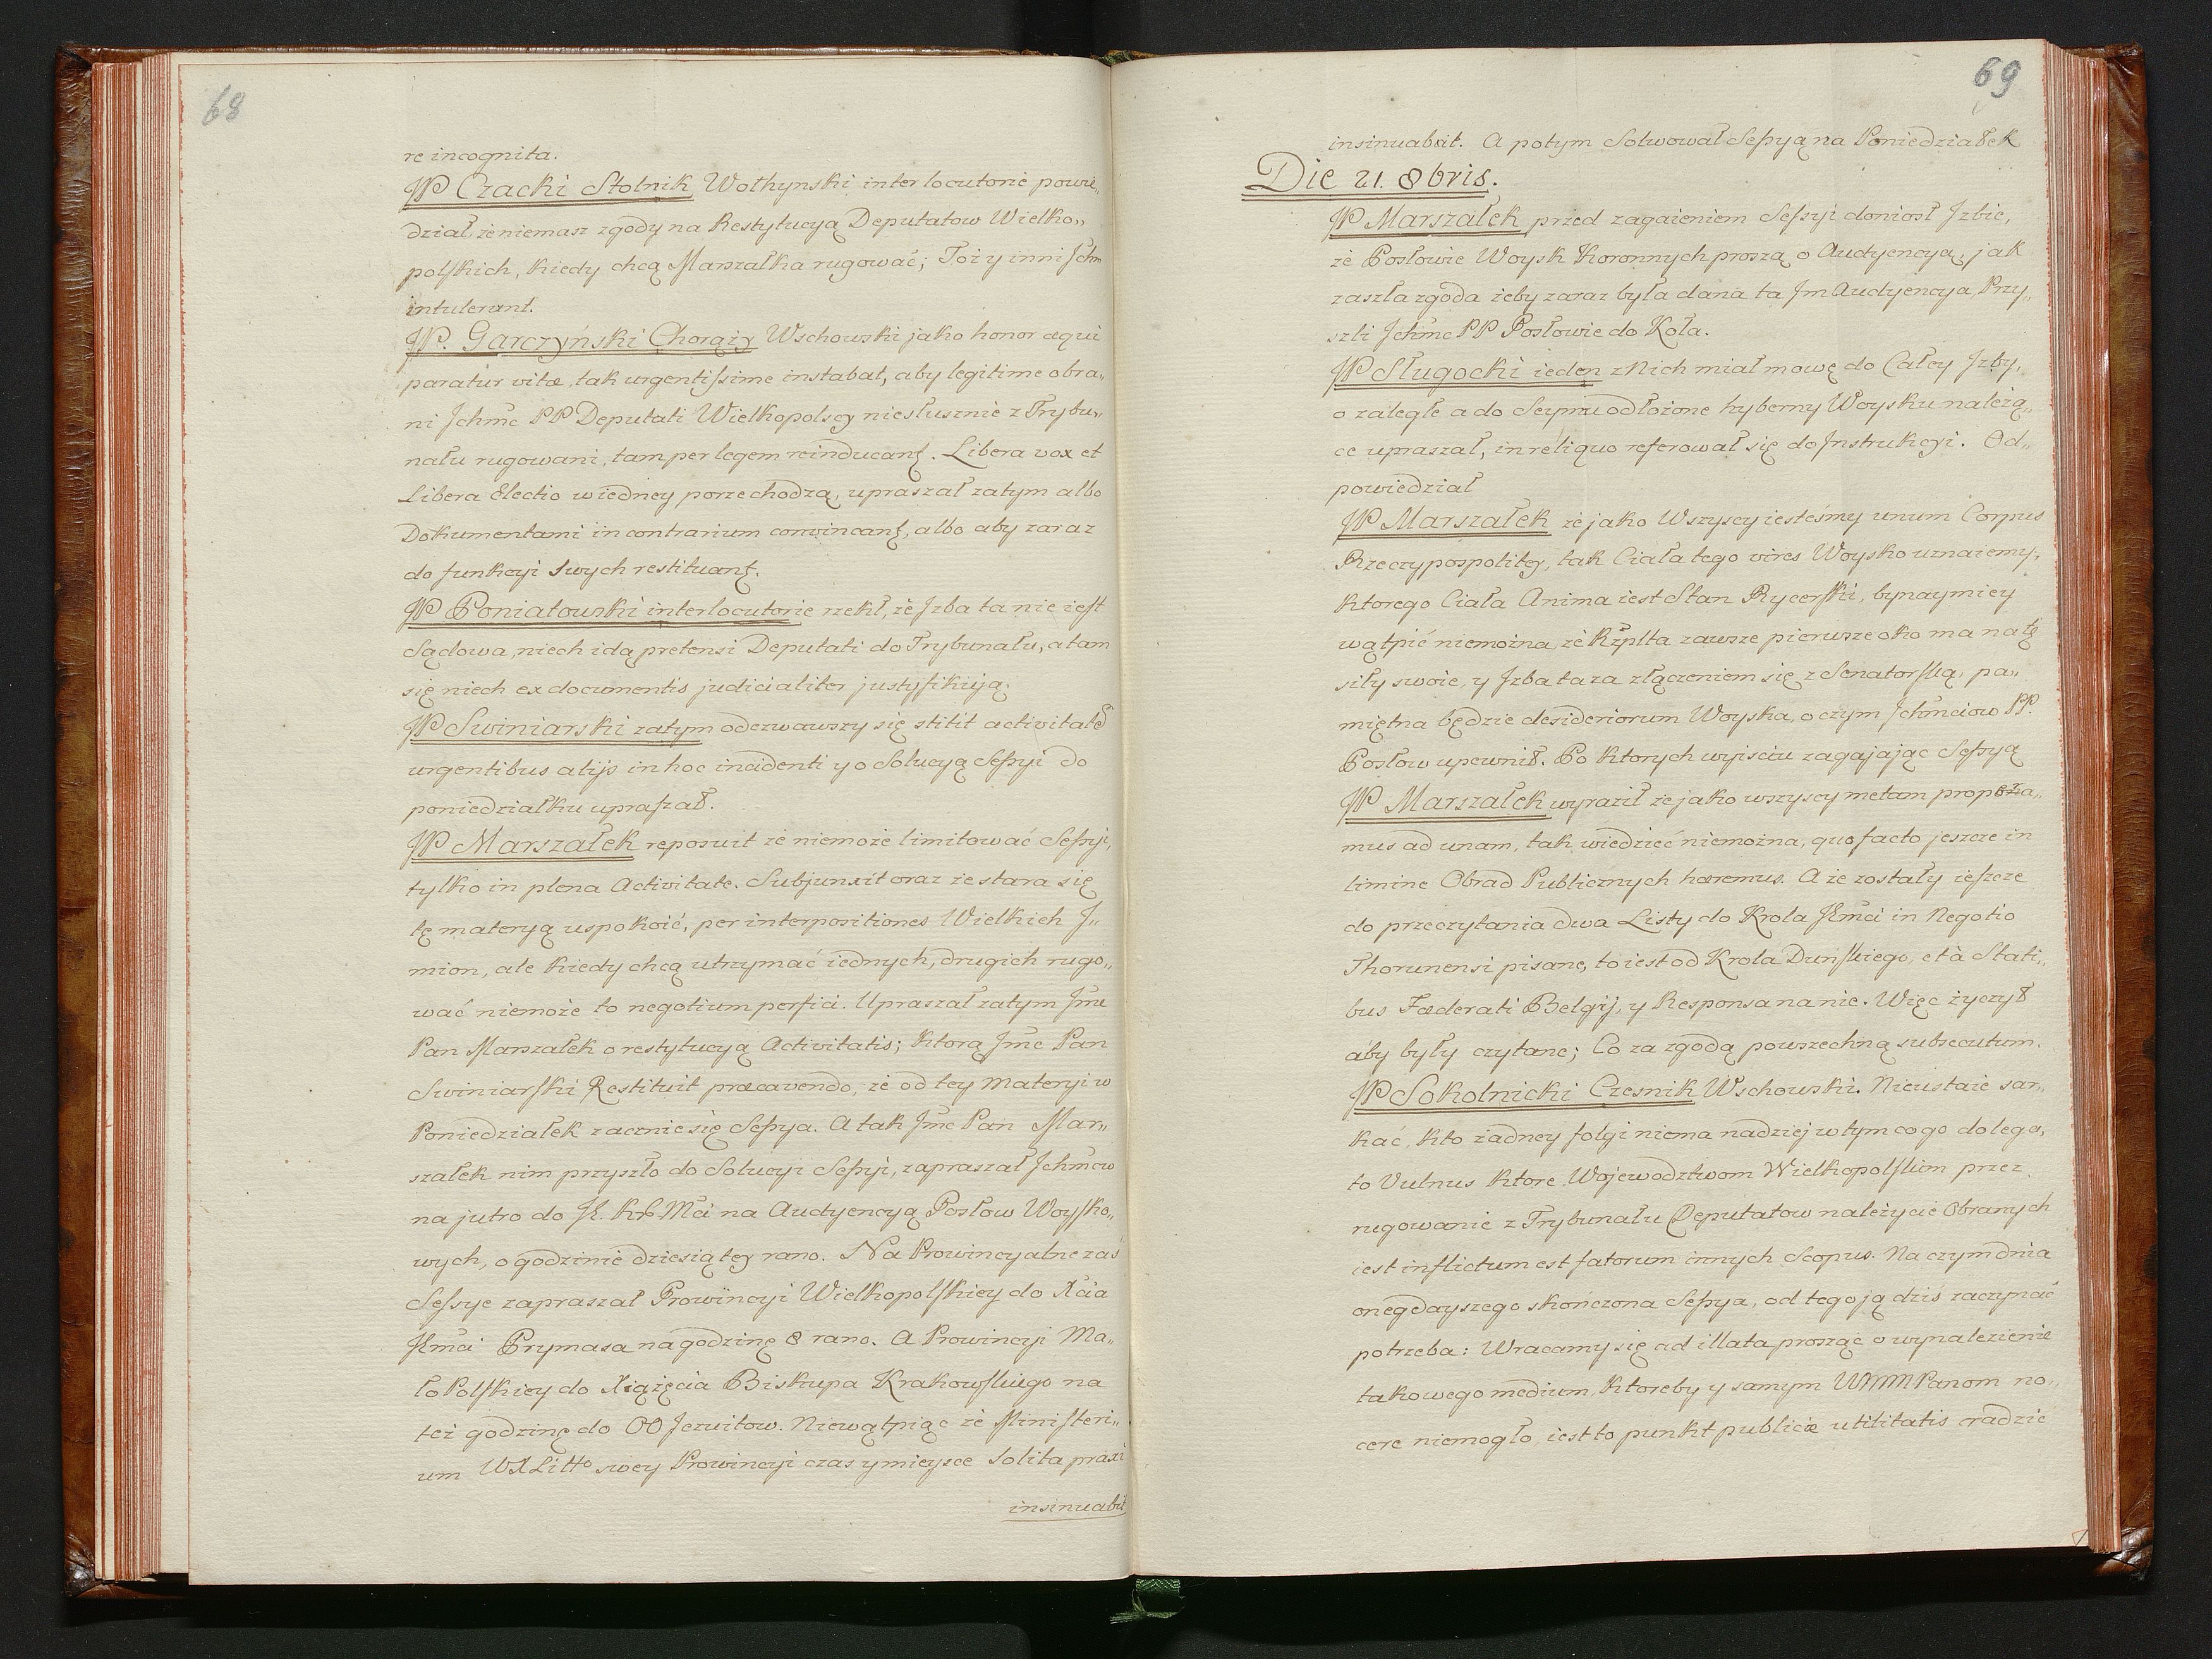 68
re incognita.
JP Czacki Stolnik Wołhynski interlocutorie powie„
dział, że niemasz zgody na Restytucyą Deputatow Wielko„
polskich, kiedy chcą Marszałka rugować; Toż y inni Jchm
intulerunt.
JP. Garczyński Chorąży Wschowski jako honor æqui
paratur vitæ, tak urgentissime instabat, aby legitime obra„
ni Jchmc PP Deputati Wielkopolscy niesłusznie z Trybu„
nału rugowani, tam per legem reinducant. Libera vox et
Libera Electio w iedney porze chodzą, upraszał zatym albo
Dokumentami in contrarium convincant, albo aby zaraz
do funkcyi swych restituant.
JP Poniatowski interlocutorie rzekł, że Jzba ta nie iest
Sądowa, niech idą pretensi Deputati do Trybunału, a tam
się niech ex documentis judicialiter justyfikują.
JP Swiniarski zatym odezwawszy się stitit activitatē
urgentibus alijs in hoc incidenti y o Solucyą Sessyi do
poniedziałku upraszał.
JP Marszałek reposuit że niemoże limitować Sessyi,
tylko in plena Activitate. Subjunxit oraz że stara się
tę materyą uspokoić, per interpositiones Wielkich J„
mion, ale kiedy chcą utrzymać iednych, drugich rugo„
wać niemoże to negotium perfici. Upraszał zatym Jmc
Pan Marszałek o restytucyą Activitatis; ktorą Jmc Pan
Swiniarski Restituit præcavendo, że od tey materyi w
Poniedziałek zacznie się Sessya. A tak Jmc Pan Mar„
szałek nim przyszło do Solucyi Sessyi, zapraszał Jchmcw
na jutro do J. Kr Mci na Audyencyą Posłow Woysko„
wych, o godzinie dziesiątey rano. Na Prowincyalne zaś
Sessye zapraszał Prowincyi Wielkopolskiey do Xcia
Jkmci Prymasa na godzinę 8 rano. A Prowincyi Ma„
ło Polskiey do Xiążęcia Biskupa Krakowskiego na
też godzinę do OO Jezuitow. Niewątpiąc że Ministeri„
um WXLitto swey Prowincyi czas y mieysce solita praxi
insinuabit
69
insinuabit. A potym Solwował Sessyą na Poniedziałek
Die 21. 8bris.
JP Marszałek przed zagaieniem Sessyi doniosł Jzbie,
że Posłowie Woysk Koronnych proszą o Audyencyą, jak
zaszła zgoda żeby zaraz była dana ta Jm Audyencya, Przy„
szli Jchmc PP Posłowie do Koła.
JP Sługocki ieden z Nich miał mowę do Całey Jzby,
o zaległe a do Seymu odłożone hyberny Woysku należą„
ce upraszał, in reliquo referował się do Jnstrukcyi. Od„
powiedział
JP Marszałek że jako Wszyscy iesteśmy unum Corpus
Rzeczypospolitey, tak Ciała tego vires Woysko uznaiemy,
ktorego Ciała Anima iest Stan Rycerski, bynaymiey
wątpić niemożna, że Rzplta zawsze pierwsze oko ma na tę
siły swoie, y Jzba ta za złączeniem się z Senatorską, pa„
miętna będzie desideriorum Woyska, o czym Jchmciow PP.
Posłow upewnił. Po ktorych wyisciu zagajając Sessyą
JP Marszałek wyraził że jako wszyscy metam propera„
mus ad unam, tak wiedzieć niemożna, quo facto jeszcze in
limine Obrad Publicznych hæremus. A że zostały ieszcze
do przeczytania dwa Listy do Krola Jkmci in Negotio
Thorunensi pisane, to iest od Krola Dunskiego, et à Stati„
bus Fœderati Belgij, y Responsa na nie. Więc życzył
aby były czytane; Co za zgodą powszechną subsecutum.
JP Sokolnicki Czesnik Wschowski. Nieustaie sar„
kać, kto żadney folgi niema nadziej w tym co go dolega,
to Vulnus ktore Wojewodztwom Wielkopolskim przez
rugowanie z Trybunału Deputatow należycie Obranych
iest inflictum est fatorum innych Scopus. Na czym dnia
onegdayszego skończona Sessya, od tego ją dziś zaczynać
potrzeba: Wracamy się ad illata prosząc o wynalezienie
takowego medium, ktoreby y samym WMM Panom no„
cere niemogło, iest to punkt publicæ utilitatis radzie